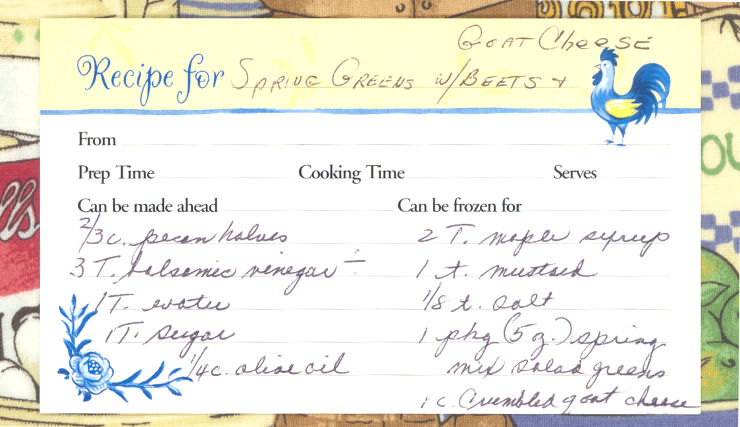 Goat Cheese
Recipe for Spring Greens w/Beets +
From
Prep Time Cooking Time Serves
Can be made ahead Can be frozen for
2/3 c. pecan halves
3 T. balsamic vinegar ÷
1 T. water
1 T. sugar
1/4 c. olive oil
2 T. maple syrup
1 t. mustard
1/8 t. salt
1 pkg (5 oz.) spring
mix salad greens
1 c. Crumbled goat cheese
lls
OU